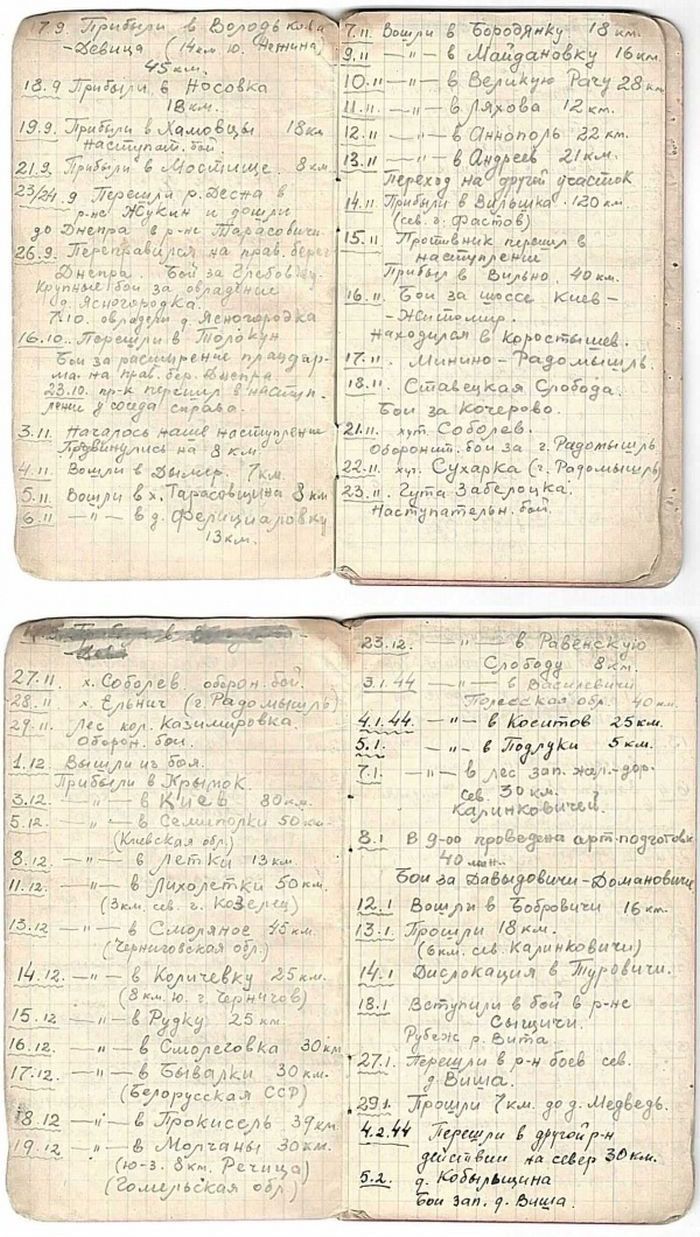 17.9. Прибыли в Володькова
-Девица (14 км ю. Нежина)
45 км.
18.9 Прибыли в Носовка
18 км.
19.9. Прибыли в Хамовцы 18 км
наступат. бой.
21.9. Прибыли в Мостище. 8 км.
23/24.9 Перешли р. Десна в
р-не Жукин и дошли
до Днепра в р-не Тарасовичи
26.9. Переправился на прав. берег
Днепра. Бой за Глебовку-
Крупные бои за овладение
д. Ясногородка.
7.10. овладели д. Ясногородка
16.10. Перешли в Толокун
Бои за расширение плацдар-
ма на прав. бер. Днепра.
23.10. пр-к перешил в наступ-
ление у соседа справа.
3.11. Началось наше наступление
Продвинулись на 8 км.
4.11. Вошли в Дымер. 7 км.
5.11 Вошли в х. Тарасовщина 8 км
6.11 —"— в д. Фелициаловку
13 км.
7.11. Вошли в Бородянку 18 км.
9.11 —"— в Майдановку 16 км.
10.11 —"— в Великую Рачу 28 км
11.11 —"— в Ляхова 12 км.
12.11 —"— в Аннополь 22 км.
13.11 —"— в Андреев 21 км.
Переход на другой участок
14.11 Прибыли в Вильшка. 120 км
(сев. г. Фастов)
15.11 Противник перешил в
наступление
Прибыл в Вильно. 40 км.
16.11. Бои за шоссе Киев-
-Житомир.
Находился в Коростышев.
17.11. Минино-Радомышль.
18.11. Ставецкая Слобода.
Бои за Кочерово.
21.11. хут. Соболев.
Оборонит. бои за г. Радомышль
22.11. хут. Сухарка (г. Радомышль)
23.11. Гута Забелоцка.
Наступательн. бой.
27.11. х. Соболев оборон. бой.
28.11. х. Ельнич (г. Радомышль)
29.11 Лес кол. Казимировка.
Оборон. бои.
1.12. Вышли из боя.
Прибыли в Крымок.
3.12. —"— в Киев 80 км.
5.12 —"— в Семиполки 50 км.
(Киевская обл.)
8.12. —"— в Летки 13 км.
11.12. —"— в Лихолетки 50 км.
(3 км. сев. г. Козелец)
13.12 —"— в Смоляное 45 км.
(Черниговская обл.)
14.12. —"— в Количевку 25 км.
(8 км. ю. г. Чернигов)
15.12 —"— в Рудку 25 км.
16.12 —"— в Смолеговка 30 км
17.12. —"— в Бывалки 30 км.
(Белорусская ССР)
18.12 —"— в Прокисель 39 км.
19.12 —"— в Молчаны 30 км.
(ю-з. 8 км. Речица)
(Гомельская обл)
23.12. —"— в Равенскую
Слободу 8 км.
3.1.44 —"— в Василевичи
Полесская обл. 40 км.
4.1.44. —"— в Коситов 25 км.
5.1. —"— в Подлуки 5 км.
7.1. —"— в лес зап. жел-дор.
сев. 30 км.
Калинковичей.
8.1 В 9-00 проведена арт. подготовк
40 мин.
Бои за Давыдовичи-Домановичи
12.1 Вошли в Бобровичи 16 км.
13.1. Прошли 18 км.
(6 км. сев. Калинковичи)
14.1 Дислокация в Туровичи.
18.1 Вступили в бой в р-не
Сыщичи.
Рубеж р. Вита.
27.1. Перешли в р-н боев сев.
д. Виша.
29.1. Прошли 7 км. до д. Медведь.
4.2.44 Перешли в другой р-н
действии на север 30 км.
5.2. д. Кобыльщина
Бои зап. д. Виша.